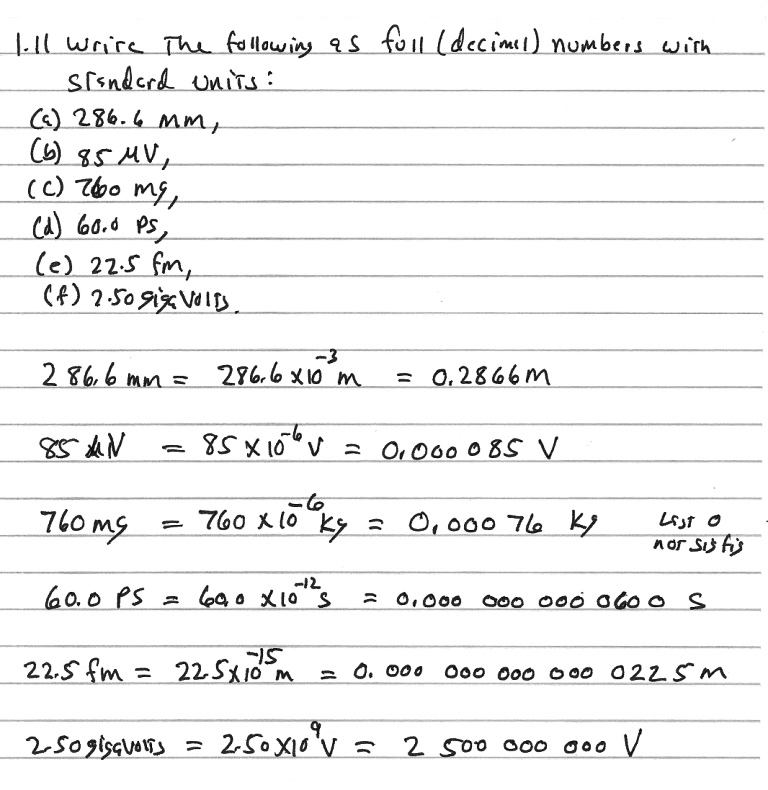 1.11 Write The following as full (decimal) numbers with
standard units:
(a) 286.6 mm,
(b) 85 μV,
(c) 760 mg,
(d) 60.0 ps,
(e) 22.5 fm,
(f) 2.50 gigavolts.
286.6 mm = 286.6 x10⁻³ m = 0.2866 m
85 μV = 85 x 10⁻⁶ V = 0.000 085 V
760 mg = 760 x 10⁻⁶ kg = 0.000 76 kg Last 0
not sig fig
60.0 ps = 60.0 x10⁻¹² s = 0.000 000 000 0600 s
22.5 fm = 22.5x10⁻¹⁵ m = 0. 000 000 000 000 0225 m
2.50 gigavolts = 2.50 x10⁹ V = 2 500 000 000 V